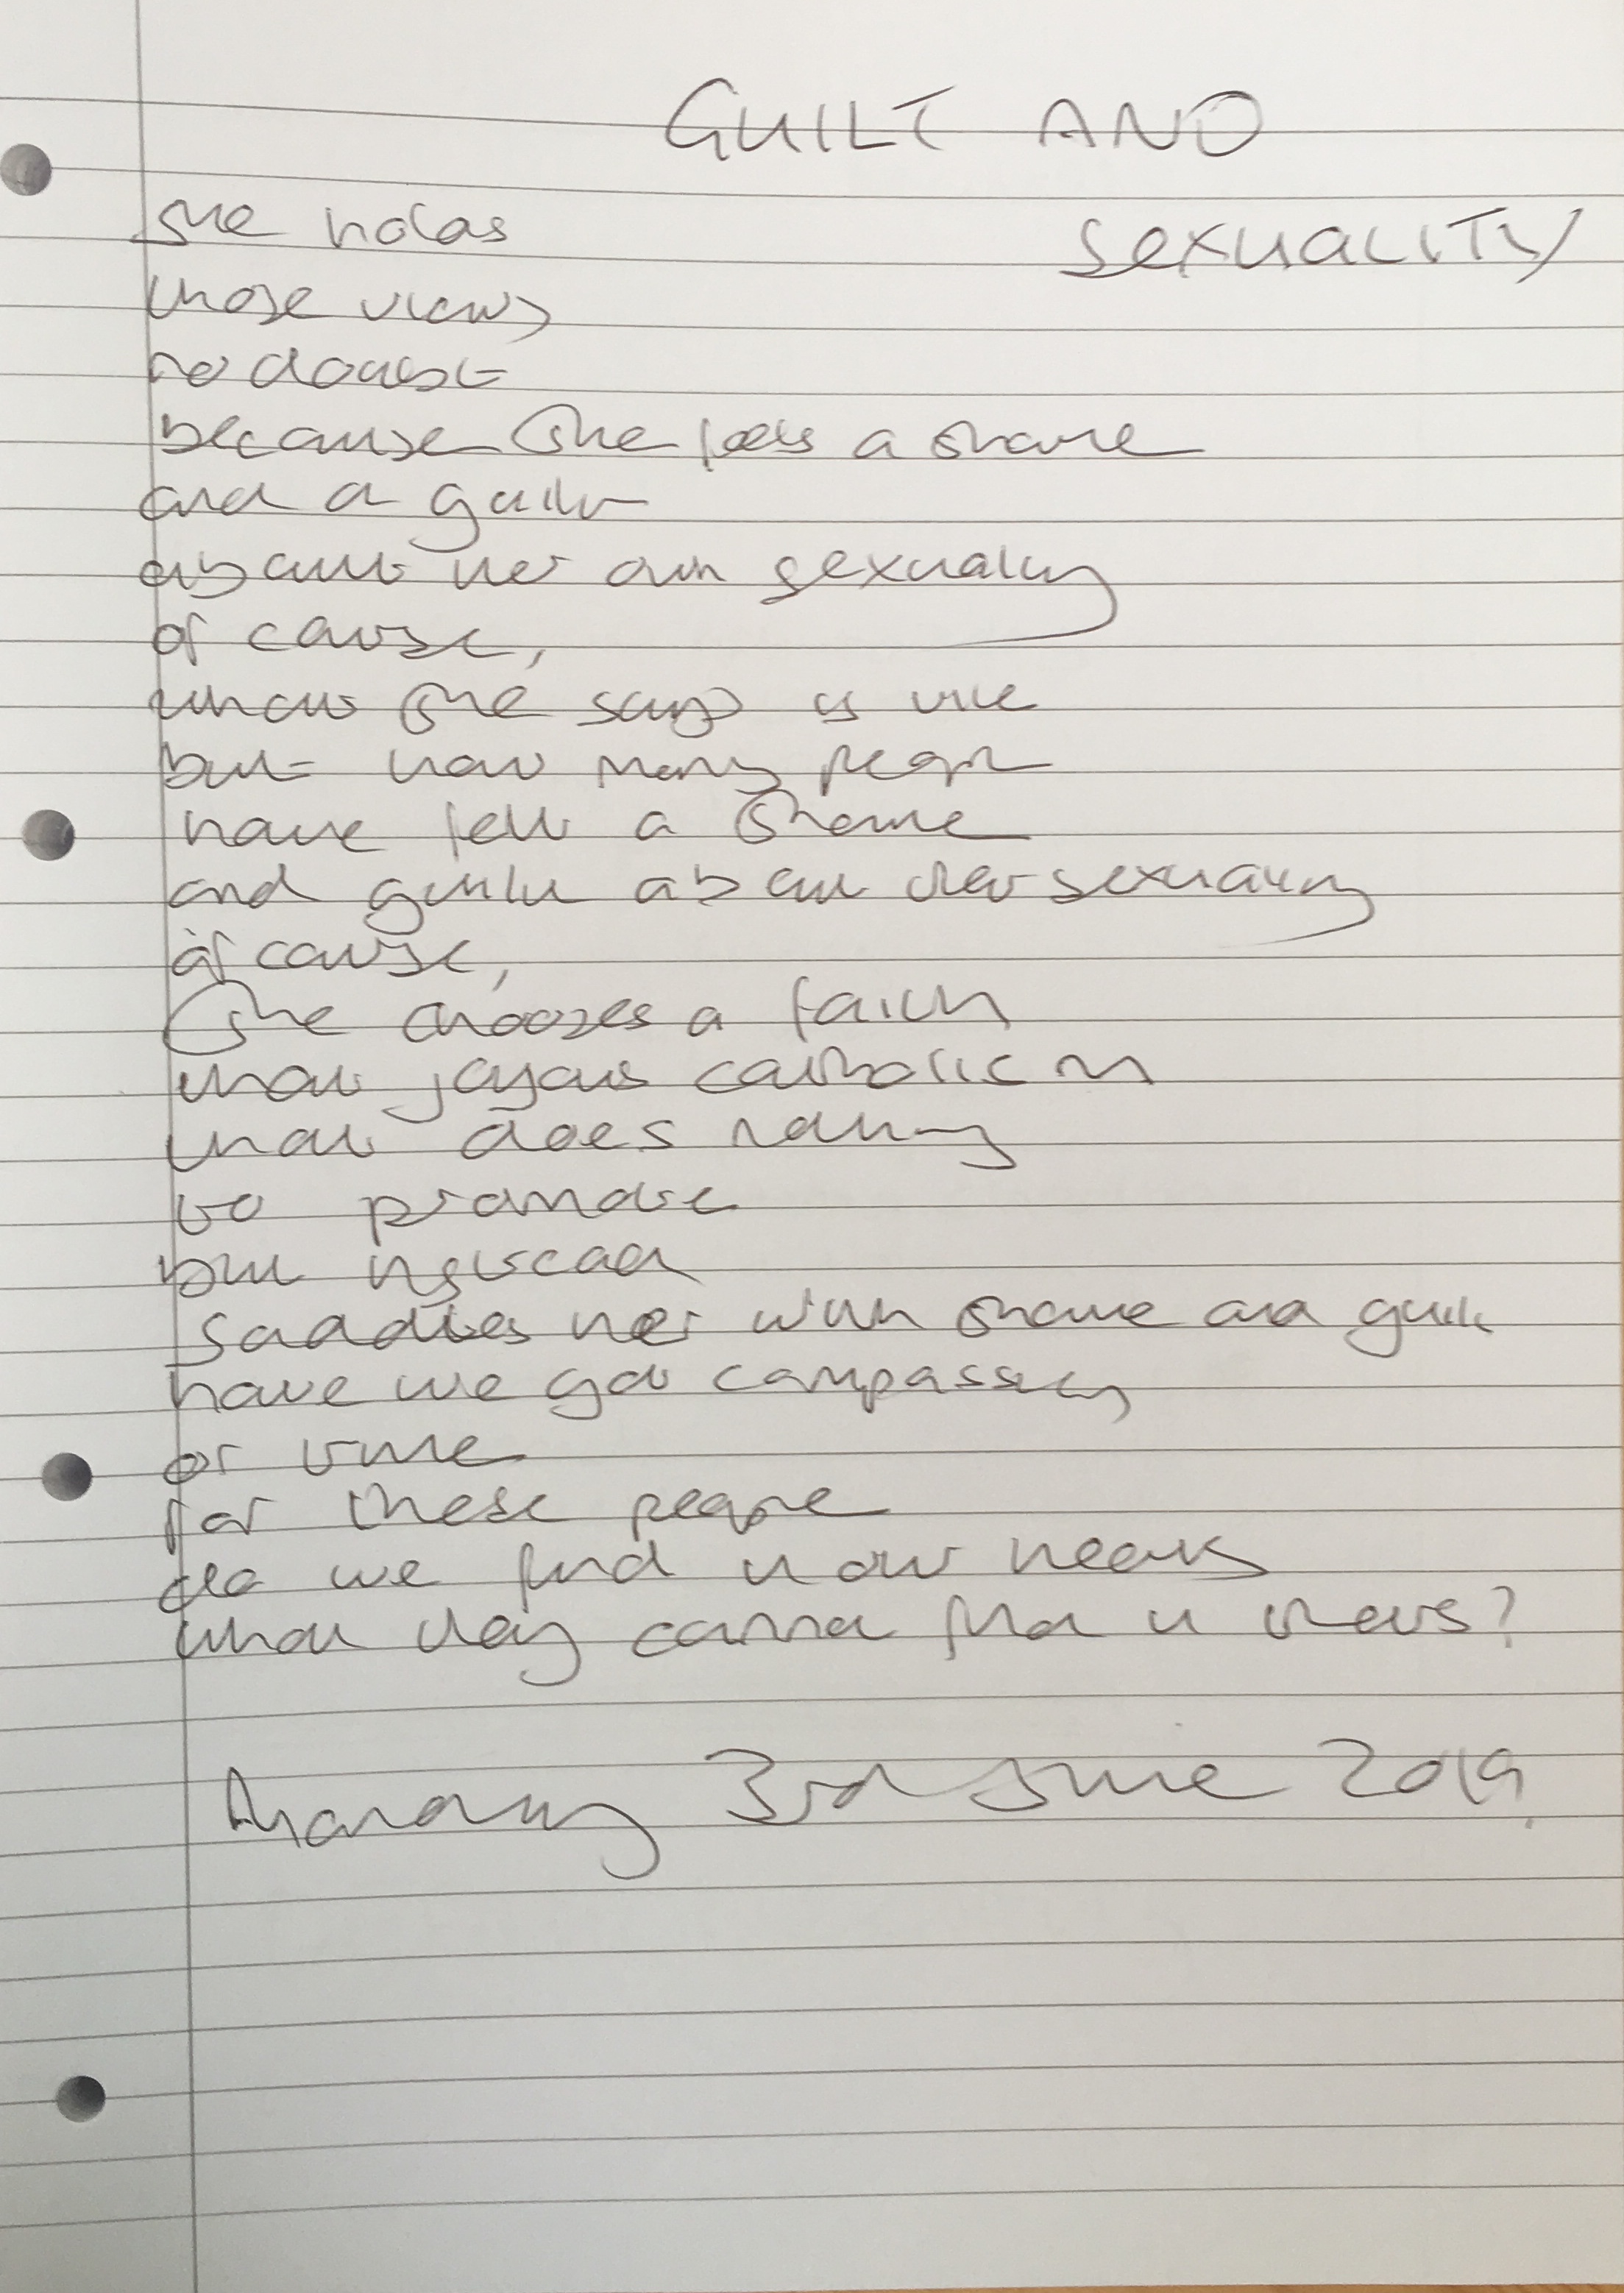 GUILT AND
SEXUALITY
she holds
those views
no doubt
because she feels a shame
and a guilt
about her own sexuality
of course,
what she says is vile
but how many people
have felt a shame
and guilt about their sexuality
of course,
she chooses a faith
that joyous catholicism
that does nothing
to promote
but instead
saddles her with shame and guilt
have we got compassion
or time
for these people
do we find in our hearts
what they cannot find in theirs?
Monday 3rd June 2019